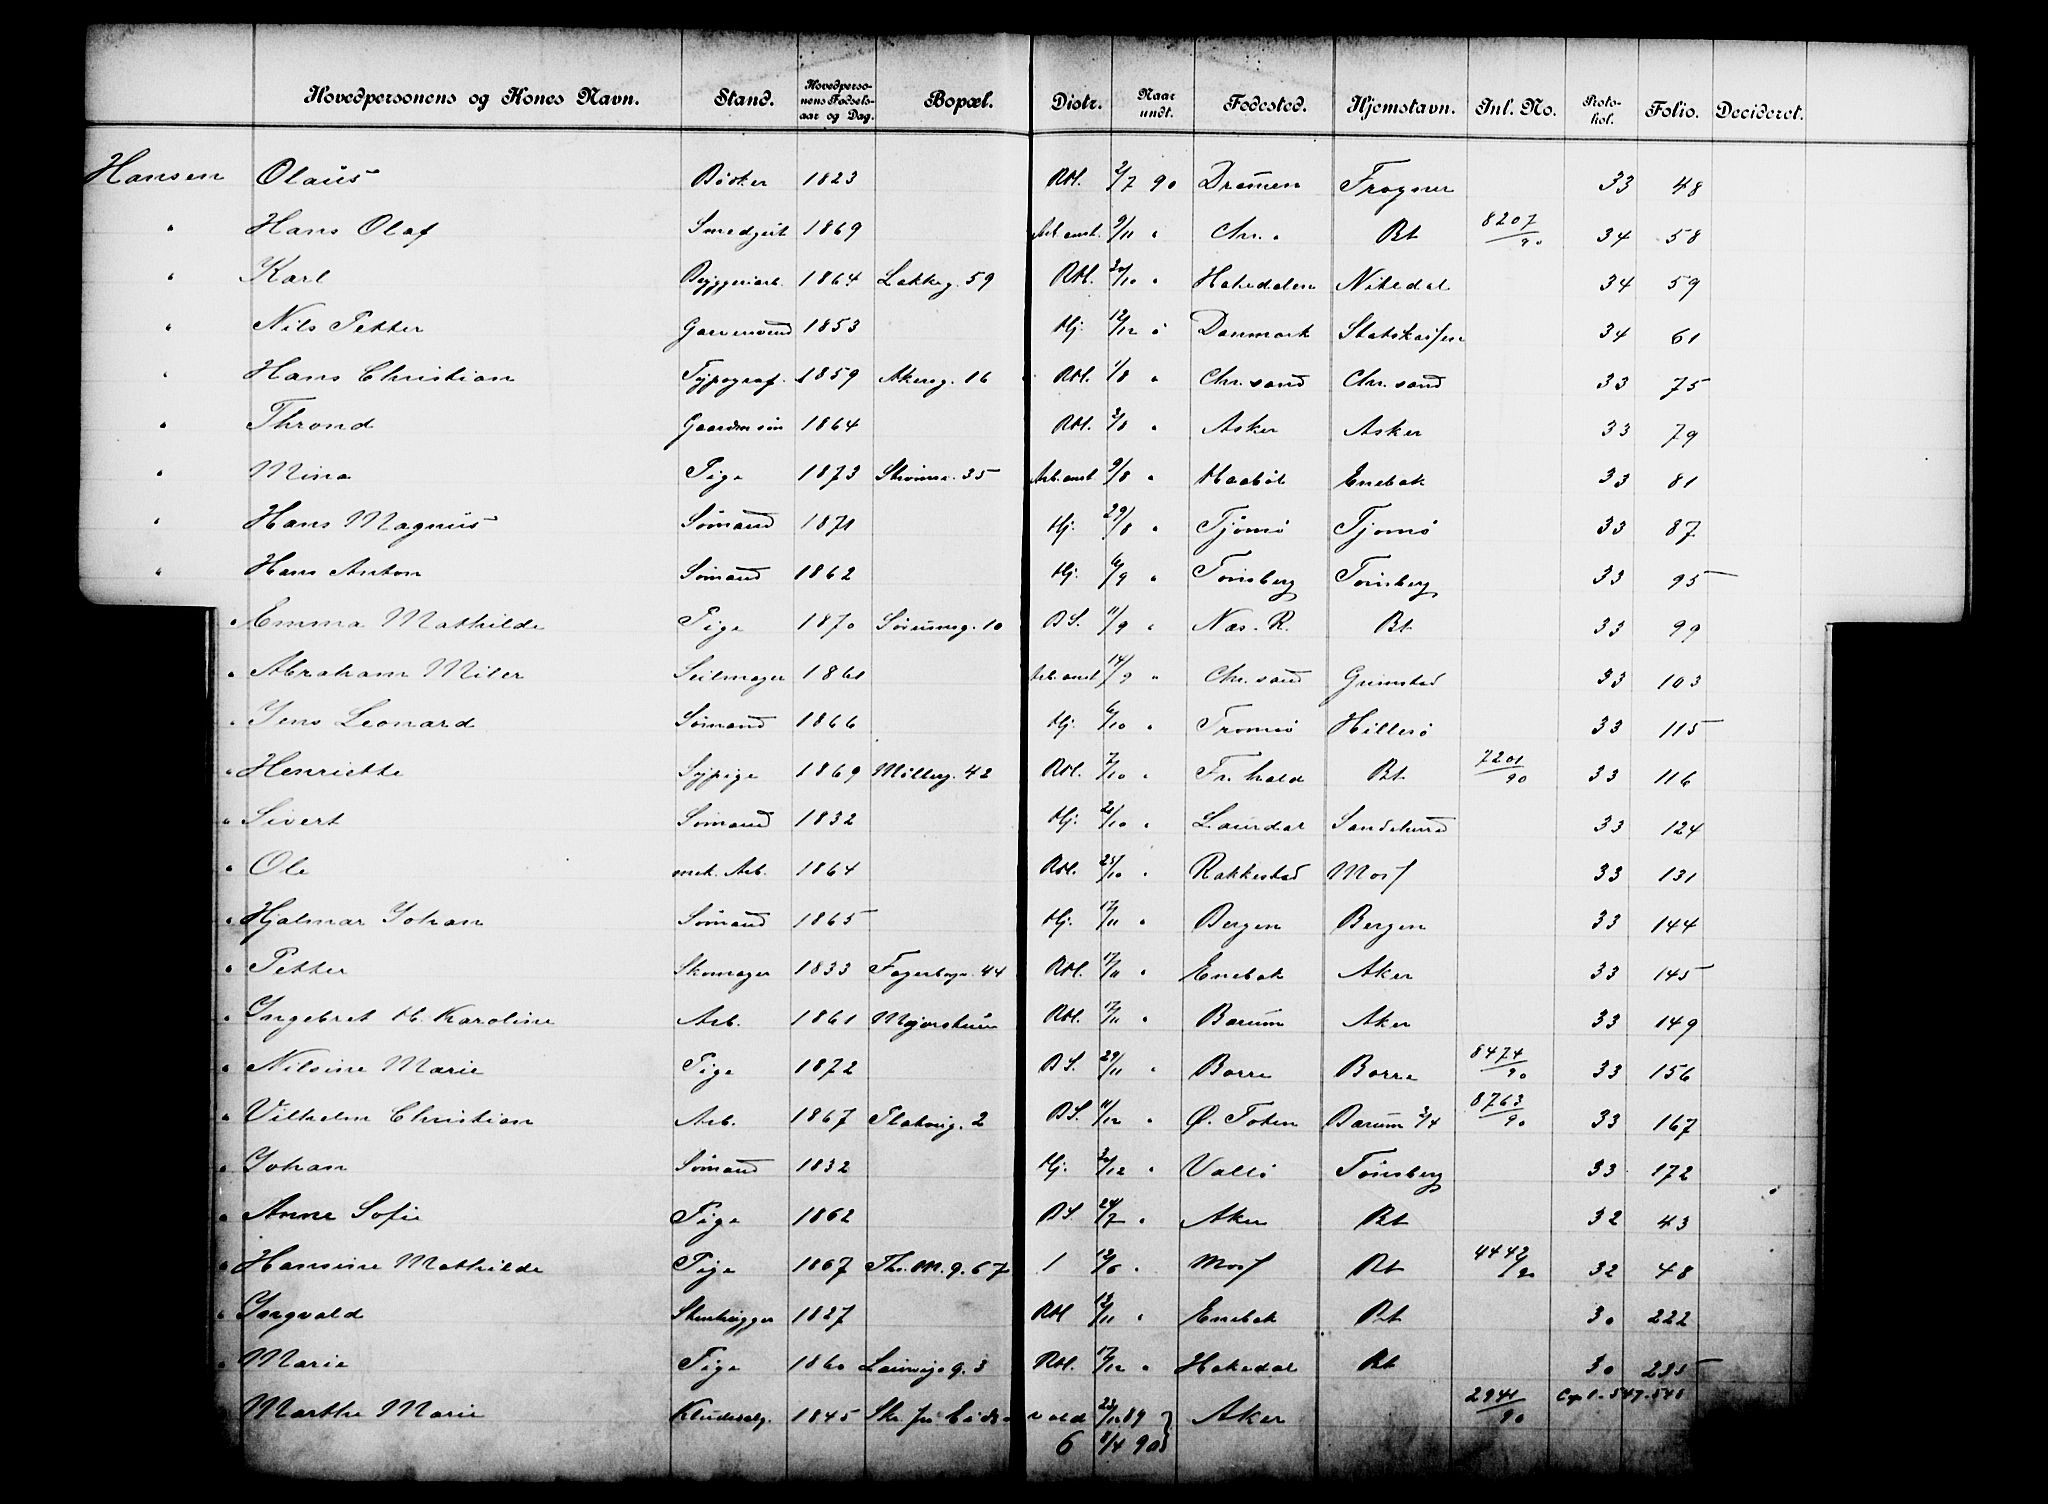 Hovedpersonens og Kones Navn. Stand. Hovedpersonens Fødselsaar og Dag. Bopæl. Distr. Naar undt. Fødested. Hjemstavn. Jnl. No. Protokol. Folio. Decideret.
Hansen Olaus Bøsker 1823 RM. 2/7 90 Dramen Frogner 33 48
" Hans Olaf Smedgut 1869 Arb.anst. 9/11 " Chr.a Bt 8207/90 34 58
" Karl Bryggeriarb. 1864 Lakkeg. 59 RM. 30/10 " Hakedalen Nitedal 34 59
" Nils Petter Garversvend 1853 Hj. 12/12 " Danmark Statskassen 34 61
" Hans Christian Typograf. 1859 Akersg. 16 RM. 1/8 " Chr.sand Chr.sand 33 75
" Thrond Gaardmsøn 1864 RM. 2/8 " Asker Asker 33 79
" Mina Pige 1873 Strømsv. 35 Arb.anst. 9/8 " Haabøl Enebak 33 81
" Hans Magnus Sømand 1871 Hj. 29/8 " Tjømø Tjømø 33 87
" Hans Anton Sømand 1862 Hj. 6/9 " Tønsberg Tønsberg 33 95
" Emma Mathilde Pige 1870 Sørumsg. 10 BS. 11/9 " Næs. R. Bt 33 99
" Abraham Miler Seilmager 1861 Arb.anst 14/9 " Chr.sand Grimstad 33 103
" Jens Leonard Sømand 1866 Hj. 6/10 " Tromsø Hillesø 33 115
" Henriette Sypige 1869 Møllerg. 42 RM. 7/10 " Fr.hald Bt 7201/90 33 116
" Sivert Sømand 1832 Hj. 21/10 " Laurdal Sandeherred 33 124
" Ole mek. Arb. 1864 RM. 25/10 " Rakkestad Moss 33 131
" Hjalmar Johan Sømand 1865 Hj. 17/11 " Bergen Bergen 33 144
" Petter Skomager 1833 Fagerborgv. 44 RM. 17/11 " Enebak Aker 33 145
" Ingebret H. Karoline Arb. 1861 Majorstuen RM. 17/11 " Bærum Aker 33 149
" Nilsine Marie Pige 1872 BS. 29/11 " Borre Borre 8474/90 33 156
" Vilhelm Christian Arb. 1867 Platousg. 2 BS. 11/12 " Ø. Toten Bærum 2/4 8763/90 33 167
" Johan Sømand 1832 Hj. 20/12 " Vallø Tønsberg 33 172
" Anne Sofie Pige 1862 BS. 24/7 " Aker Bt 32 43
" Hansine Mathilde Pige 1867 Thv.M.g. 67 1 12/6 " Moss Bt 4442/90 32 48
" Ingvald Stenhugger 1827 RM 12/11 " Enebak Bt 30 222
" Marie Pige 1860 Laurvigsg. 3 RM. 17/12 " Hakedal Bt 30 235
Marthe Marie Kludesælg. 1845 vold 23/12 89 Aker 2941/90 Cop 1. 547. 548
6 8/4 90